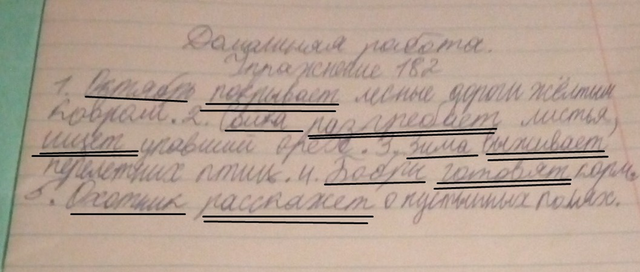 Домашняя работа.
Упражнение 182
1. Октябрь покрывает лесные дороги жёлтым
ковром. 2. Белка разгребает листья,
ищет упавший орех. 3. Зима выживает
перелетних птиц. 4. Бобры готовят корм.
5. Охотник расскажет о пустынных полях.